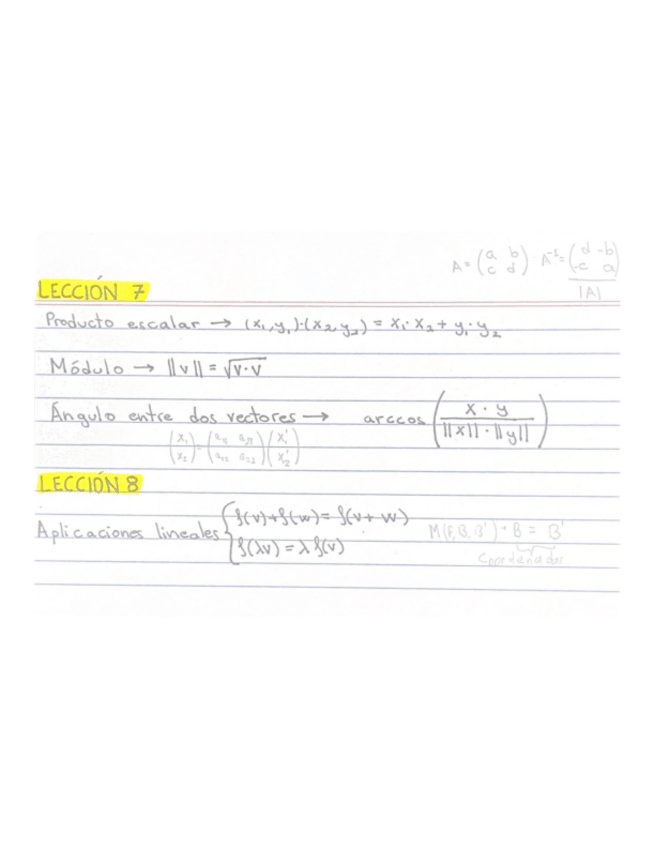 A = (a b / c d) A⁻¹ = (d -b / -c a) / |A|
LECCIÓN 7
Producto escalar → (x₁,y₁)·(x₂,y₂) = x₁·x₂ + y₁·y₂
Módulo → ||v|| = √v·v
Ángulo entre dos vectores → arccos (x · y / ||x|| · ||y||)
(x₁ / x₂) = (a₁₁ a₂₁ / a₁₂ a₂₂) (x₁' / x₂')
LECCIÓN 8
Aplicaciones lineales { f(v)+f(w) = f(v+w)
f(λv) = λ f(v)
M(F,B,B') · B = B'
Coordenadas